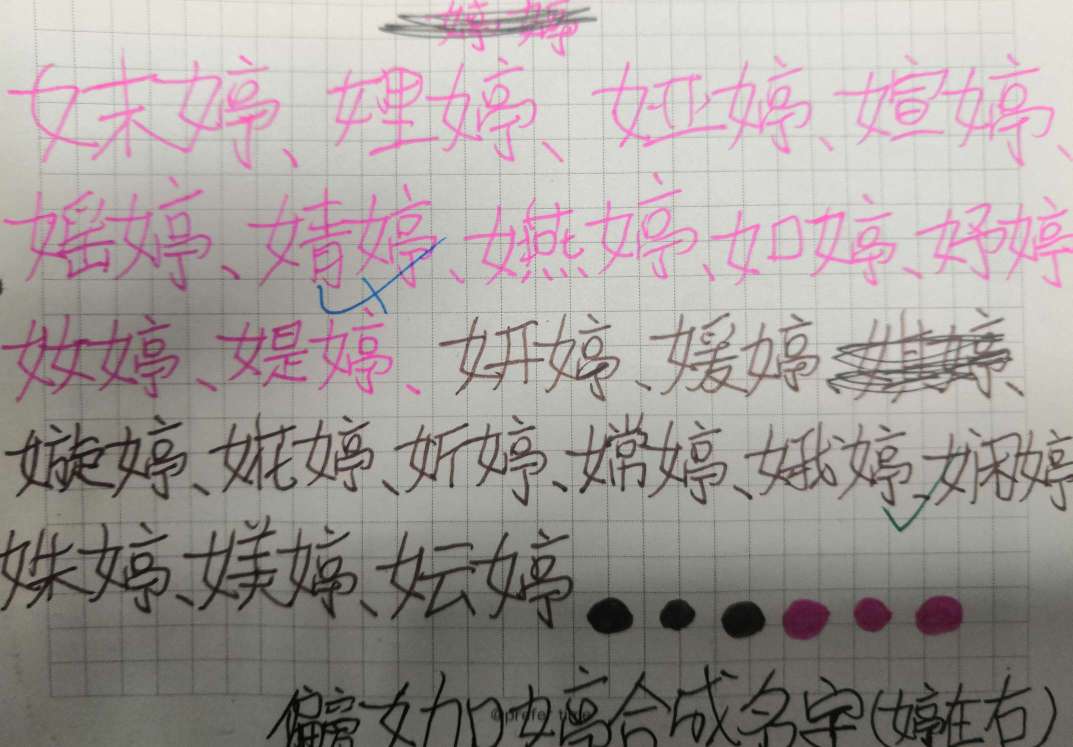 婷 婷
妹婷、娌婷、娅婷、媗婷、
媱婷、婧婷、嬿婷、如婷、妤婷
奻婷、媞婷、妍婷、媛婷
嫙婷、婲婷、妡婷、嫦婷、娥婷、娴婷
姝婷、媄婷、妘婷
偏旁女加口婷合成名字(婷在右)